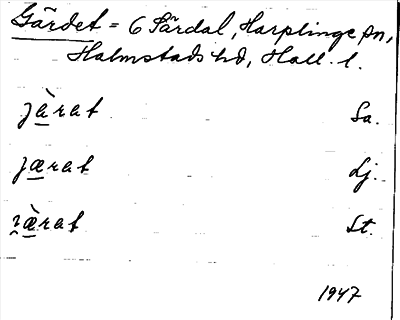 Gärdet = 6 Särdal, Harplinge sn,
Halmstads hd, Hall. l.
jà̠rat Sa.
jæ̠rat Lj.
ɪ̯æ̠̀rat St.
1947